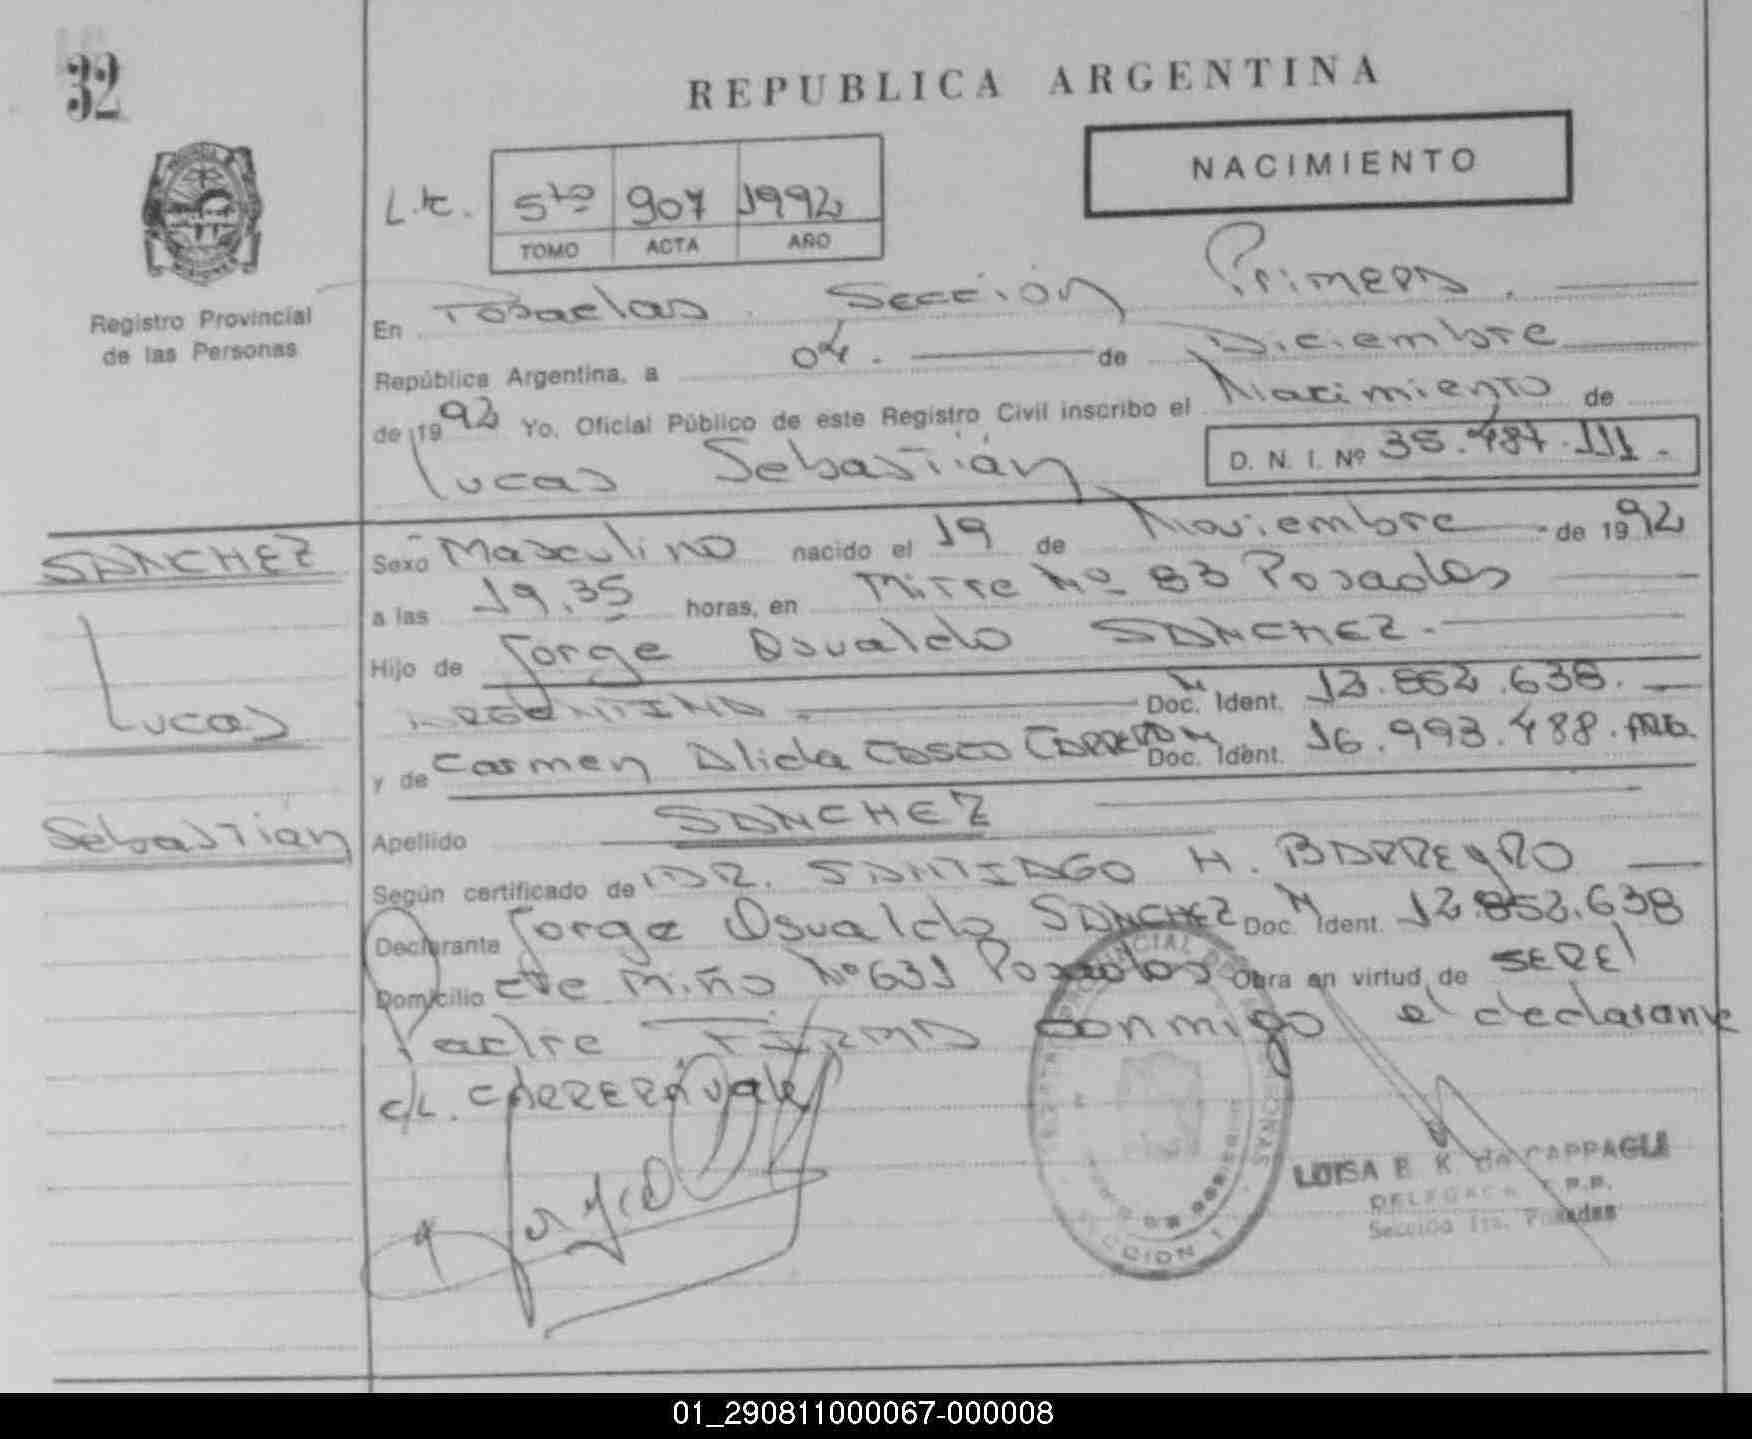 32
REPUBLICA ARGENTINA
NACIMIENTO
5to 907 1992
TOMO ACTA AÑO
Registro Provincial
de las Personas
En Posadas Sección Primera.
República Argentina, a 04. de Diciembre
de 1992 Yo, Oficial Público de este Registro Civil inscribo el Nacimiento de
Lucas Sebastián D. N. I. Nº 35.487.111.
SANCHEZ
Lucas
Sebastián
Sexo Masculino nacido el 19 de Noviembre de 1992
a las 19,35 horas, en Mitre Nº 83 Posadas
Hijo de Jorge Osvaldo SANCHEZ.
ARGENTINO. Doc. Ident. 12.852.638.
y de Carmen Alida Doc. Ident. 16.993.488. ARG.
Apellido SANCHEZ
Según certificado de DR. SANTIAGO H. BARREYRO
Declarante Jorge Osvaldo SANCHEZ Doc. Ident. 12.852.638
Domicilio Miño Nº 631 Posadas Obra en virtud de SER el
Padre FIRMA conmigo el declarante
vale
LUISA E K de CAPPAGLI
Sección 1ra. Posadas
01_290811000067-000008